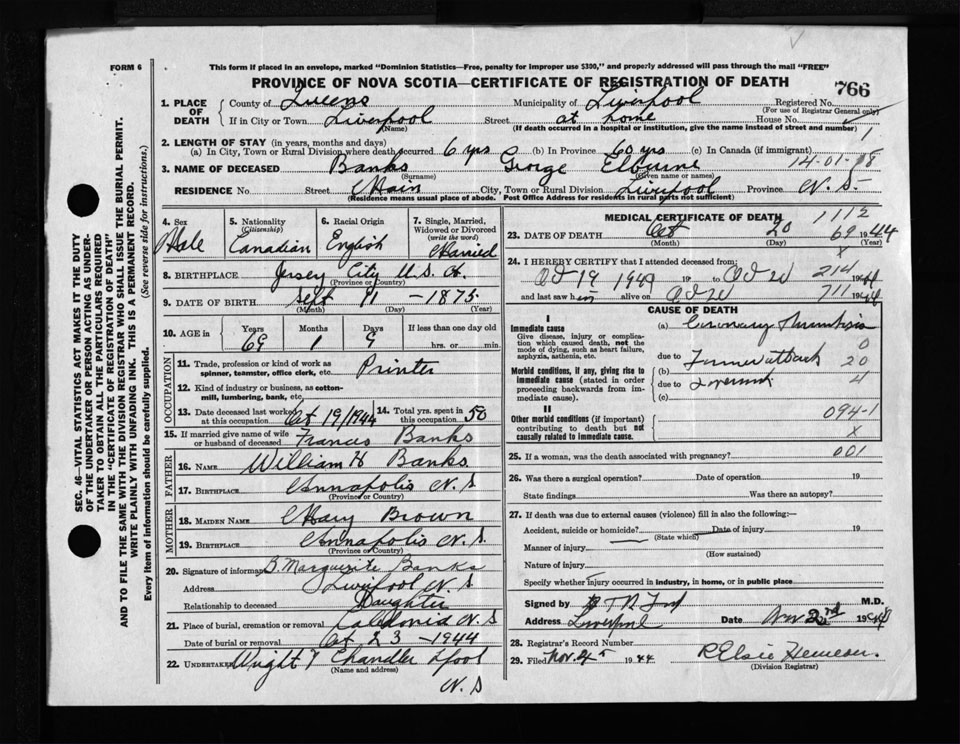 FORM 6
This form if placed in an envelope, marked "Dominion Statistics—Free, penalty for improper use $300," and properly addressed will pass through the mail "FREE"
PROVINCE OF NOVA SCOTIA—CERTIFICATE OF REGISTRATION OF DEATH
766
1. PLACE OF DEATH
County of Queens Municipality of Liverpool Registered No.
(For use of Registrar General only)
If in City or Town Liverpool Street at home House No.
(Name) (If death occurred in a hospital or institution, give the name instead of street and number)
2. LENGTH OF STAY (in years, months and days)
(a) In City, Town or Rural Division where death occurred 6 yrs (b) In Province 60 yrs (c) In Canada (if immigrant)
1
14-01-
3. NAME OF DECEASED Banks George Elburne
(Surname) (Given name or names)
RESIDENCE No. Street Main City, Town or Rural Division Liverpool Province N. S.
(Residence means usual place of abode. Post Office Address for residents in rural parts not sufficient)
4. Sex Male
5. Nationality (Citizenship) Canadian
6. Racial Origin English
7. Single, Married, Widowed or Divorced (write the word) Married
8. BIRTHPLACE Jersey City U. S. A.
(Province or Country)
9. DATE OF BIRTH Sept 11 - 1875
(Month) (Day) (Year)
10. AGE in Years 69 Months 1 Days 9 If less than one day old hrs. or min.
OCCUPATION
11. Trade, profession or kind of work as spinner, teamster, office clerk, etc. Printer
12. Kind of industry or business, as cotton-mill, lumbering, bank, etc.
13. Date deceased last worked at this occupation Oct 19/1944 14. Total yrs. spent in this occupation 50
15. If married give name of wife or husband of deceased Frances Banks
FATHER
16. NAME William H Banks
17. BIRTHPLACE Annapolis N. S
(Province or Country)
MOTHER
18. MAIDEN NAME Mary Brown
19. BIRTHPLACE Annapolis N. S.
(Province or Country)
20. Signature of informant B. Marguerite Banks
Address Liverpool N. S.
Relationship to deceased Daughter
21. Place of burial, cremation or removal Caledonia N. S
Date of burial or removal Oct 23 - 1944
22. UNDERTAKER Wright Chandler Lpool
(Name and address)
N. S
MEDICAL CERTIFICATE OF DEATH
1112
23. DATE OF DEATH Oct 20 69 1944
(Month) (Day) (Year)
x
24. I HEREBY CERTIFY that I attended deceased from:
Oct 19 19 to Oct 20 214 1944
and last saw him alive on Oct 20 711 1944
CAUSE OF DEATH
I
Immediate cause
Give disease, injury or complication which caused death, not the mode of dying, such as heart failure, asphyxia, asthenia, etc.
(a) Coronary Thrombosis
0
due to
Morbid conditions, if any, giving rise to immediate cause (stated in order proceeding backwards from immediate cause).
(b) Former attack 20
due to 4
(c)
II
Other morbid conditions (if important) contributing to death but not causally related to immediate cause.
094-1
x
25. If a woman, was the death associated with pregnancy? 001
26. Was there a surgical operation? Date of operation 19
State findings Was there an autopsy?
27. If death was due to external causes (violence) fill in also the following:—
Accident, suicide or homicide? Date of injury 19
(State which)
Manner of injury
(How sustained)
Nature of injury
Specify whether injury occurred in industry, in home, or in public place
Signed by M.D.
Address Liverpool Date Nov 2nd 1944
28. Registrar's Record Number
29. Filed Nov. 1944 R Elsie
(Division Registrar)
SEC. 46—VITAL STATISTICS ACT MAKES IT THE DUTY
OF THE UNDERTAKER OR PERSON ACTING AS UNDER-
TAKER TO OBTAIN ALL THE PARTICULARS REQUIRED
IN THE "CERTIFICATE OF REGISTRATION OF DEATH"
AND TO FILE THE SAME WITH THE DIVISION REGISTRAR WHO SHALL ISSUE THE BURIAL PERMIT.
WRITE PLAINLY WITH UNFADING INK. THIS IS A PERMANENT RECORD.
Every item of information should be carefully supplied. (See reverse side for instructions.)